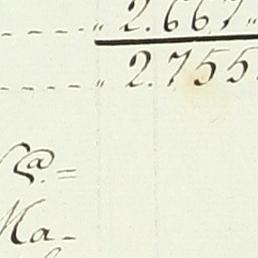 2.667
2.755
@.=
Ma-